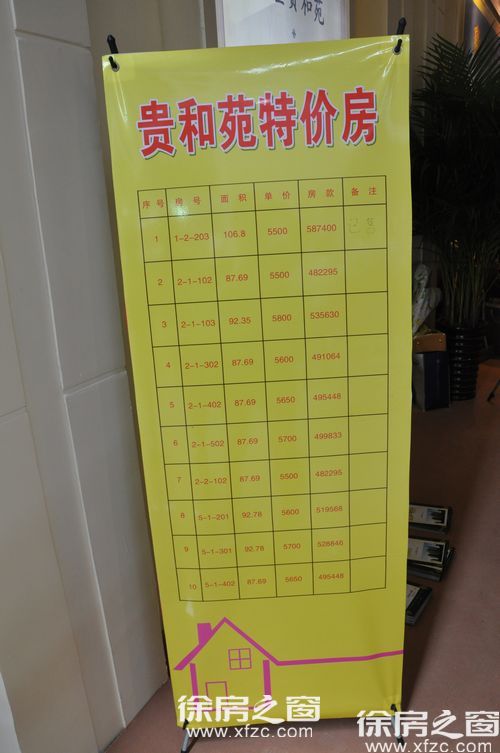 贵和苑
贵和苑特价房
序号 房号 面积 单价 房款 备注
1 1-2-203 106.8 5500 587400
2 2-1-102 87.69 5500 482295
3 2-1-103 92.35 5800 535630
4 2-1-302 87.69 5600 491064
5 2-1-402 87.69 5650 495448
6 2-1-502 87.69 5700 499833
7 2-2-102 87.69 5500 482295
8 5-1-201 92.78 5600 519568
9 5-1-301 92.78 5700 528846
10 5-1-402 87.69 5650 495448
徐房之窗
www.xfzc.com
徐房之窗
www.xfzc.com